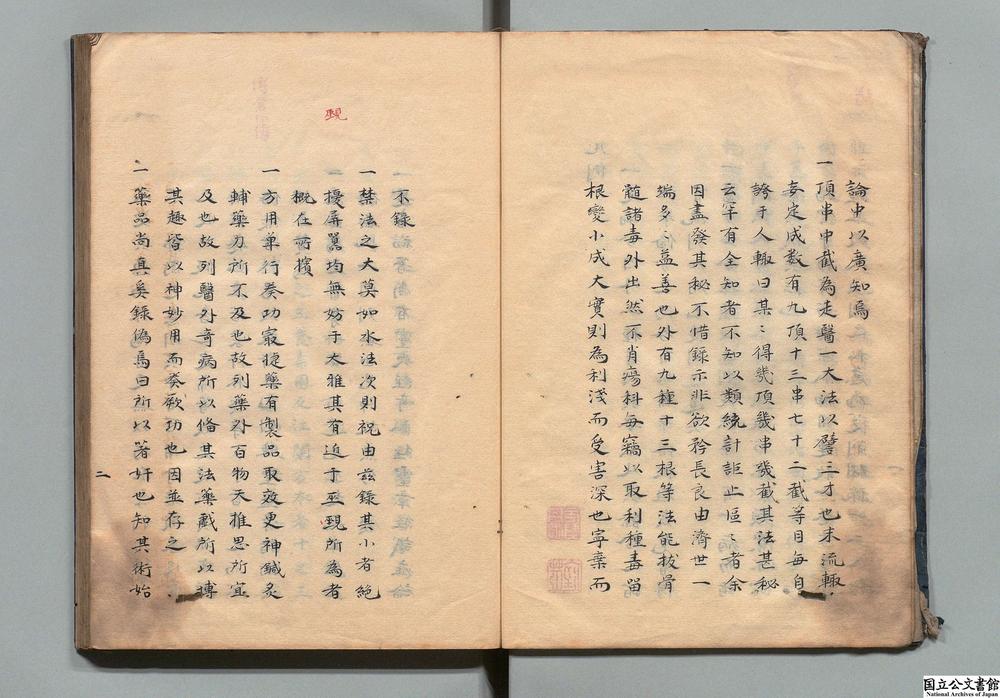 論中以廣知焉
一頂串中截為走醫一大法以譬三才也末流輙
妄定成数有九頂十三串七十二截等目每自
誇于人輙曰某〻得幾頂幾串幾截其法甚秘
云罕有全知者不知以類統計詎止區〻者余
因盡發其秘不惜録示非欲矜長良由濟世一
端多〻益善也外有九種十三根等法能拔骨
髄諸毒外出然不肖瘍科每竊以取利種毒留
根變小成大實則為利淺而受害深也寧棄而
不録
一禁法之大莫如水法次則祝由兹録其小者絶
擾屏嚣均無妨于大雅其有迫于巫覡所為者
覡
概在所擯
一方用單行奏功最捷藥有製品取效更神鍼灸
輔藥力所不及也故列藥外百物天推思所宜
及也故列醫外奇病所以俻其法藥戲所以博
其趣皆以神妙用而發厥功也因並存之
一藥品尚真奚録偽焉曰所以著奸也知其術始
二
国立公文書館
National Archives of Japan